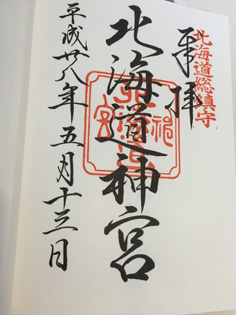 北海道総鎮守
奉拝
北海道神宮
平成廿八年五月十三日